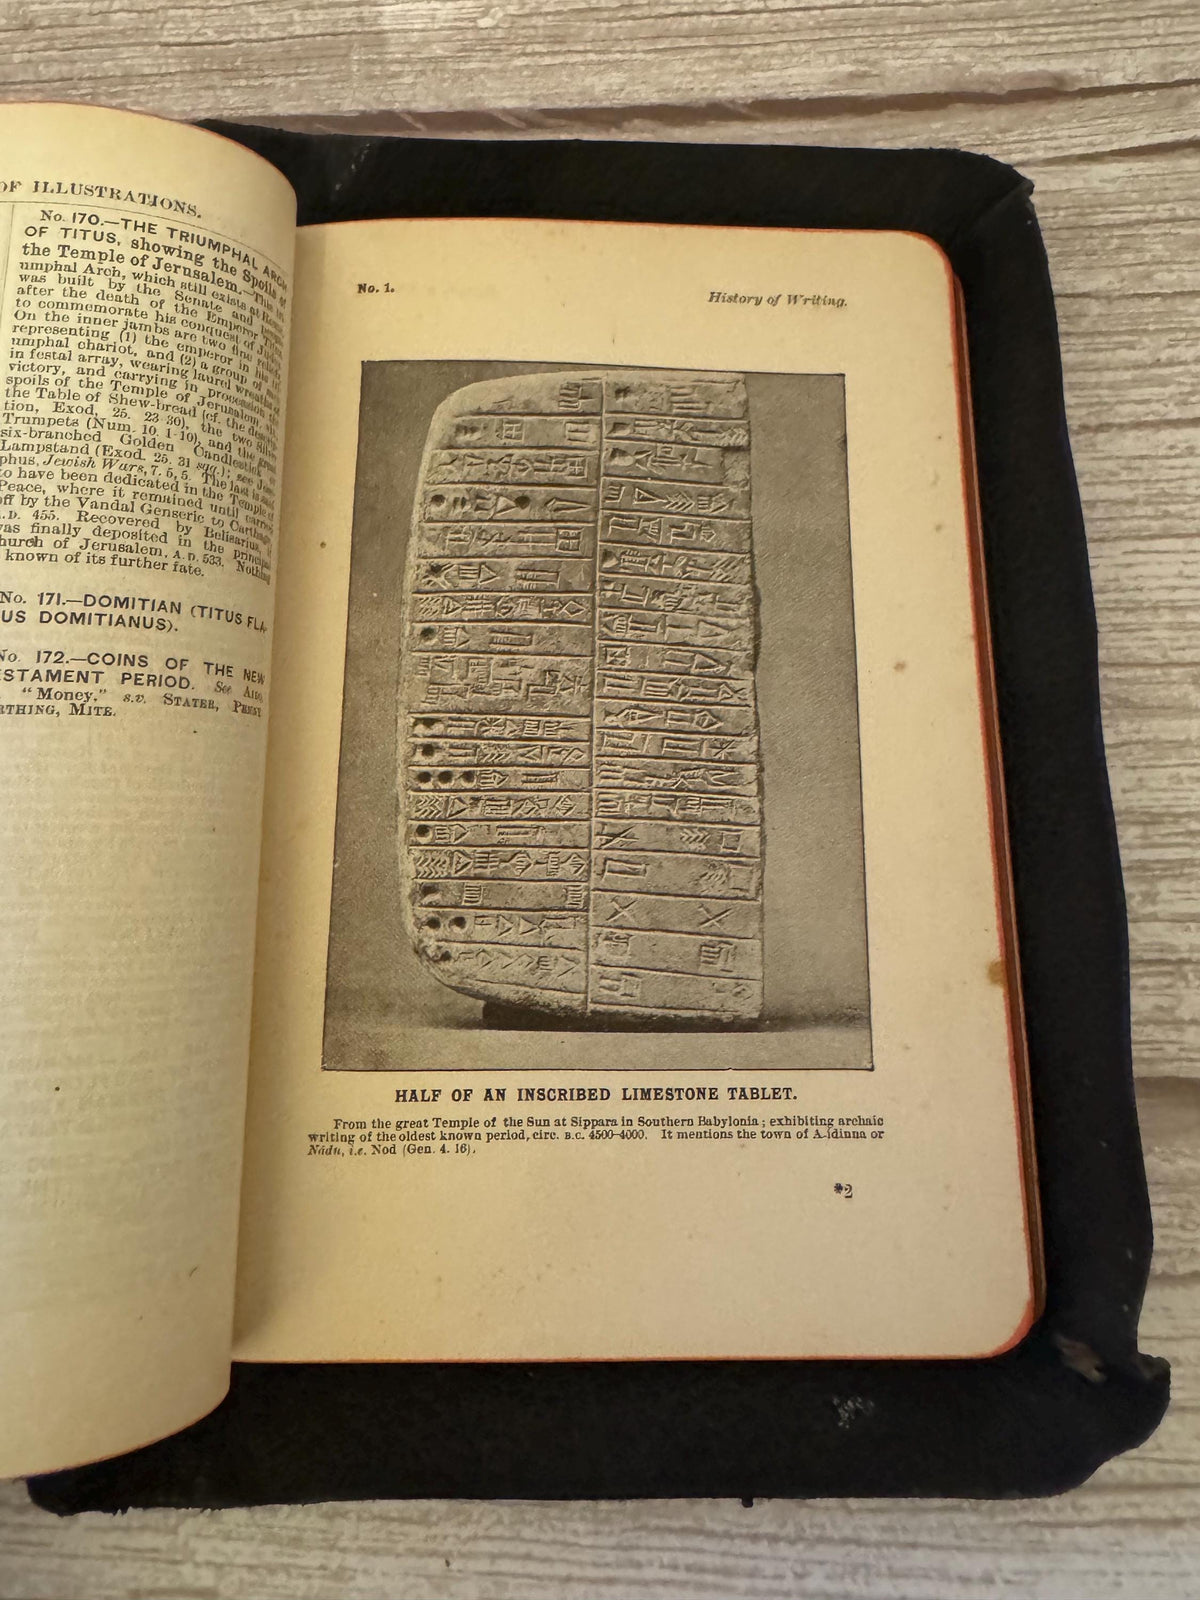 OF ILLUSTRATIONS.
No. 170.—THE TRIUMPHAL ARCH
OF TITUS, showing the Spoils of
the Temple of Jerusalem.—This
umphal Arch, which still exists at Rome,
was built by the Senate and people
after the death of the Emperor Titus
to commemorate his conquest of Judæa
On the inner jambs are two fine reliefs
representing (1) the emperor in his tri
umphal chariot, and (2) a group of
in festal array, wearing laurel wreaths of
victory, and carrying in procession the
spoils of the Temple of Jerusalem,
the Table of Shew-bread (cf. the
tion, Exod. 25. 23-30), the two Silver
Trumpets (Num. 10. 1-10), and the great
six-branched Golden Candlestick or
Lampstand (Exod. 25. 31 sqq.); see
phus, Jewish Wars, 7. 5, 5. The last is said
to have been dedicated in the Temple of
Peace, where it remained until carried
off by the Vandal Genseric to Carthage
A.D. 455. Recovered by Belisarius, it
was finally deposited in the principal
hurch of Jerusalem, A.D. 533. Nothing
known of its further fate.
No. 171.—DOMITIAN (TITUS FLA-
US DOMITIANUS).
No. 172.—COINS OF THE NEW
ESTAMENT PERIOD. See AIDS,
"Money," s.v. STATER, PENNY
RTHING, MITE.
No. 1.
History of Writing.
HALF OF AN INSCRIBED LIMESTONE TABLET.
From the great Temple of the Sun at Sippara in Southern Babylonia; exhibiting archaic
writing of the oldest known period, circ. B.C. 4500–4000. It mentions the town of A-idinna or
Nâdu, i.e. Nod (Gen. 4. 16).
*2